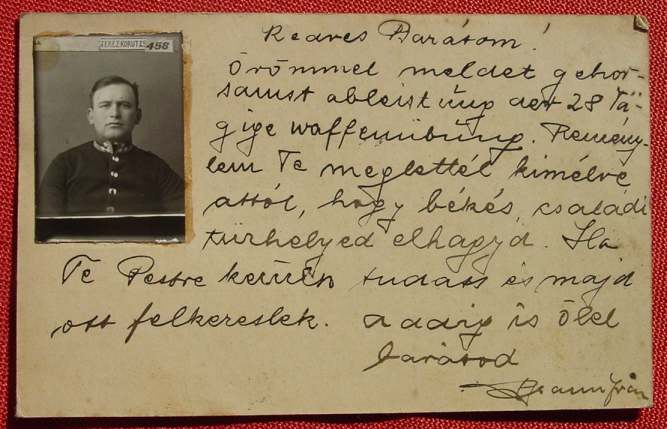 TEREZKÖRUT 15. 456
Kedves Barátom!
Örömmel meldet gehor-
samst ableistüng der 28 Tä-
gige waffenübüng. Remény-
lem Te meglettél kimélve
attól, hogy békés, családi
tűrhelyed elhagyd. Ha
Te Pestre kerülsz tudass és majd
ott felkereslek. addig is ölel
barátod